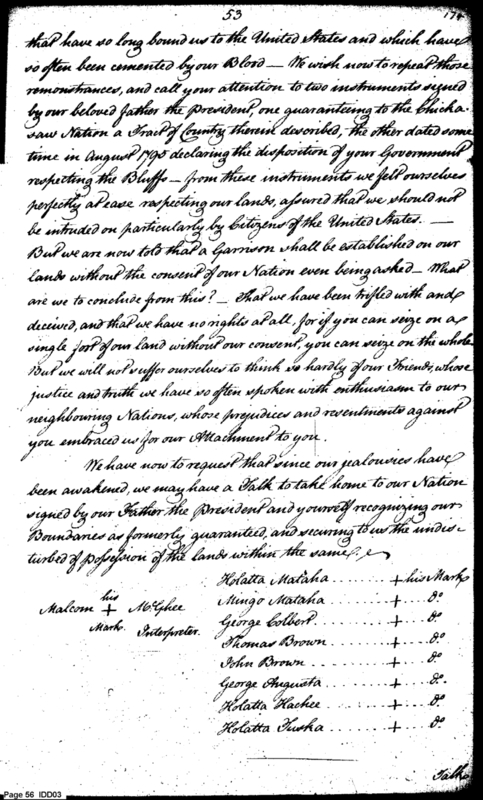 53
174
that have so long bound us to the United States and which have
so often been cemented by our Blood — We wish now to repeat those
remonstrances, and call your attention to two instruments signed
by our beloved father the President, one guaranteeing to the Chicka-
saw Nation a Tract of Country therein described, the other dated some
time in August 1795 declaring the disposition of your Government
respecting the Bluffs — from these instruments we felt ourselves
perfectly at ease respecting our lands, assured that we should not
be intruded on particularly by Citizens of the United States. —
But we are now told that a Garrison shall be established on our
lands without the consent of our Nation even being asked — What
are we to conclude from this? — That we have been trifled with and
deceived, and that we have no rights at all, for if you can seize on a
single foot of our land without our consent, you can seize on the whole
But we will not suffer ourselves to think so hardly of our Friends, whose
justice and truth we have so often spoken with enthusiasm to our
neighbouring Nations, whose prejudices and resentments against
you embraced us for our Attachment to you.
We have now to request that since our jealousies have
been awakened, we may have a Talk to take home to our Nation
signed by our Father the President and yourself recognizing our
Boundaries as formerly guaranteed, and securing to us the undis-
turbed possession of the lands within the same.
Holatta Mataha ........ + his Mark
Mingo Mataha ........ + .... do.
George Colbert ........ + .... do.
Thomas Brown ........ + .... do.
John Brown ........ + .... do.
George Augusta ........ + .... do.
Holatta Hachee ........ + .... do.
Holatta Tuska ........ + .... do.
his
Malcom + McGhee
Mark Interpreter.
Talk
Page 56 IDD03